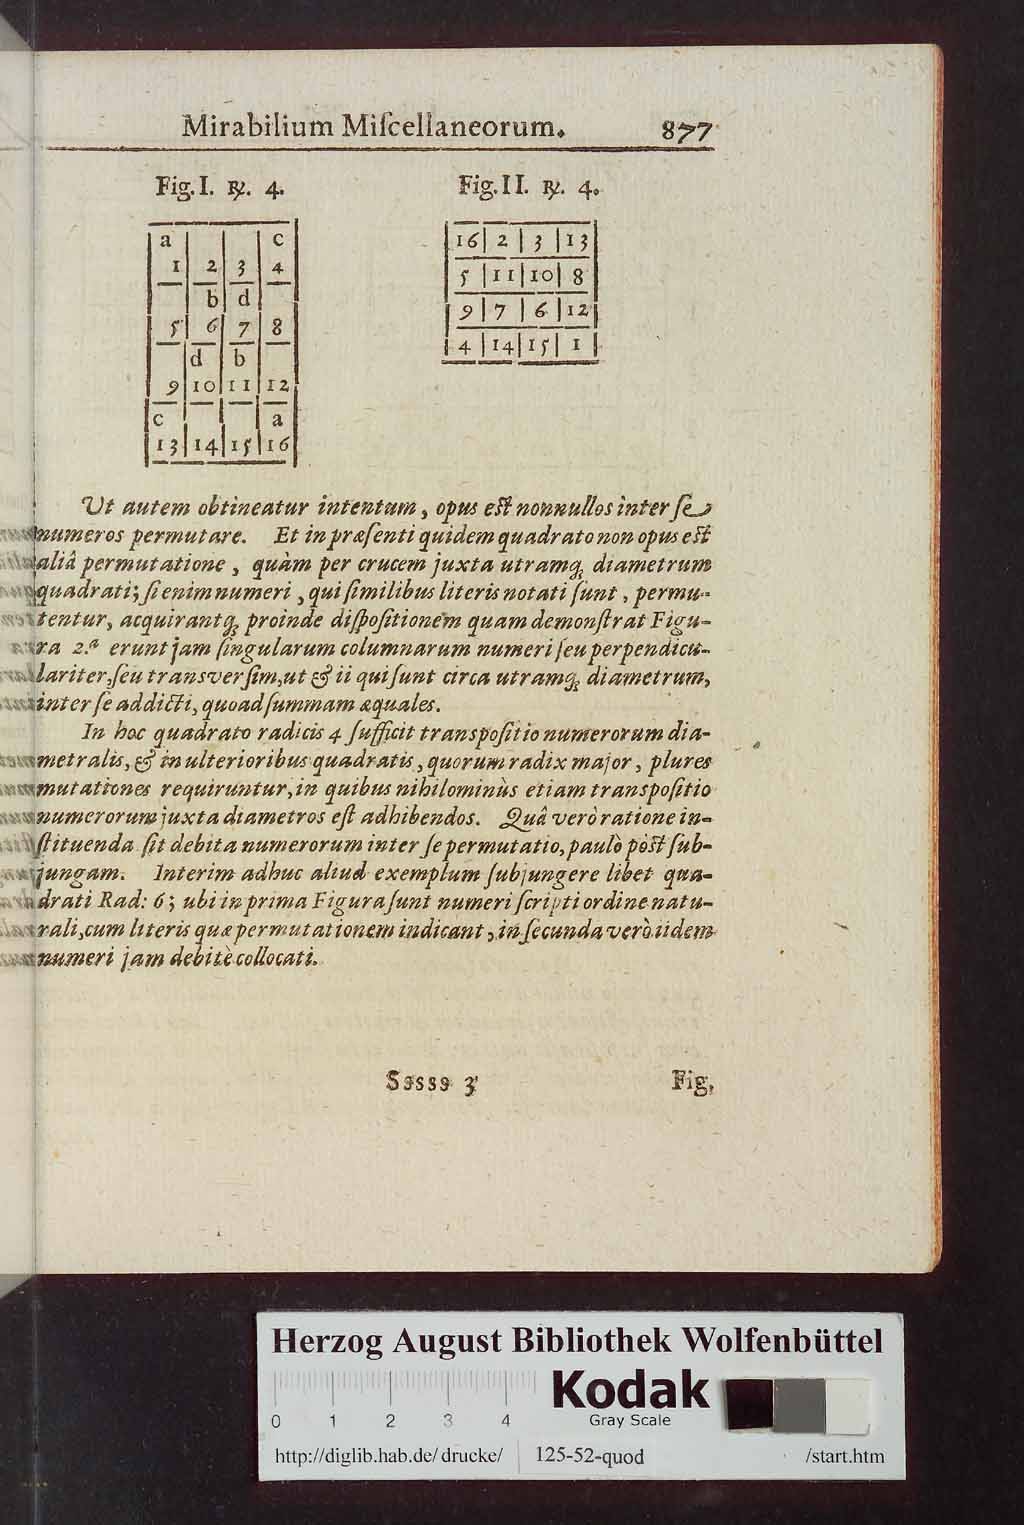 Mirabilium Miſcellaneorum. 877
Fig. I. ℞. 4. Fig. II. ℞. 4.
a c
1 2 3 4
b d
5 6 7 8
d b
9 10 11 12
c a
13 14 15 16
16 2 3 13
5 11 10 8
9 7 6 12
4 14 15 1
Ut autem obtineatur intentum, opus eſt nonnullos inter ſe
numeros permutare. Et in præſenti quidem quadrato non opus eſt
aliâ permutatione, quàm per crucem juxta utramq; diametrum
quadrati; ſi enim numeri, qui ſimilibus literis notati ſunt, permu-
tentur, acquirantq; proinde diſpoſitionem quam demonſtrat Figu-
ra 2.ª erunt jam ſingularum columnarum numeri ſeu perpendicu-
lariter, ſeu transverſim, ut & ii qui ſunt circa utramq; diametrum,
inter ſe addicti, quoad ſummam æquales.
In hoc quadrato radicis 4 ſufficit transpoſitio numerorum dia-
metralis, & in ulterioribus quadratis, quorum radix major, plures
mutationes requiruntur, in quibus nihilominùs etiam transpoſitio
numerorum juxta diametros eſt adhibendos. Quâ verò ratione in-
ſtituenda ſit debita numerorum inter ſe permutatio, paulò pòſt ſub-
jungam. Interim adhuc aliud exemplum ſubjungere libet qua-
drati Rad: 6; ubi in prima Figura ſunt numeri ſcripti ordine natu-
rali, cum literis quæ permutationem indicant, in ſecunda verò iidem
numeri jam debitè collocati.
Sssss 3 Fig.
Herzog August Bibliothek Wolfenbüttel
Kodak
Gray Scale
0 1 2 3 4
http://diglib.hab.de/drucke/ 125-52-quod /start.htm